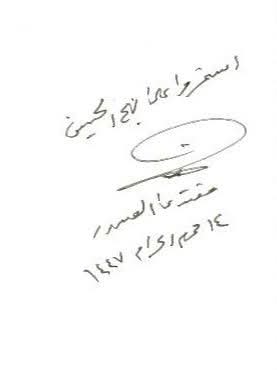 استمروا على نهج الحسين
مقتدى الصدر
١٤ محرم الحرام ١٤٤٧